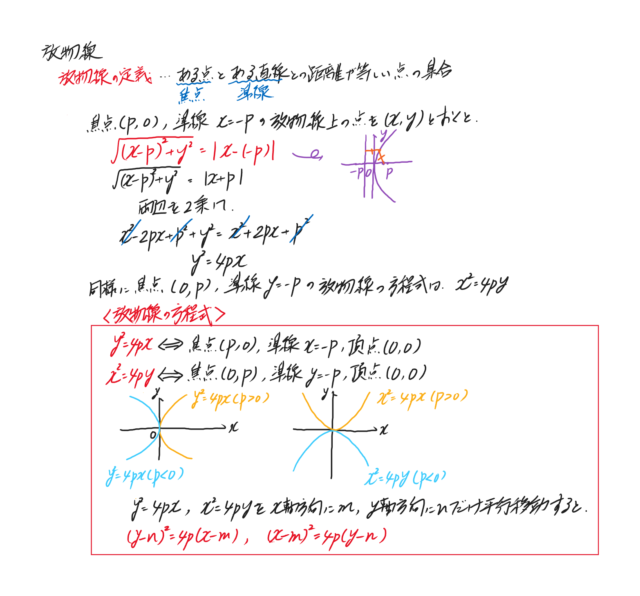 放物線
放物線の定義…ある点とある直線との距離が等しい点の集合
焦点 準線
焦点(p,0), 準線 x=-p の放物線上の点を(x,y)とおくと.
√((x-p)²+y²) = |x-(-p)|
√((x-p)²+y²) = |x+p|
y
-p 0 p
両辺を2乗して.
x²-2px+p²+y²=x²+2px+p²
y²=4px
同様に焦点(0,p), 準線 y=-p の放物線の方程式は. x²=4py
<放物線の方程式>
y²=4px ⇔ 焦点(p,0), 準線 x=-p, 頂点(0,0)
x²=4py ⇔ 焦点(0,p), 準線 y=-p, 頂点(0,0)
y y²=4px(p>0)
0 x
y²=4px(p<0)
y x²=4px(p>0)
x
x²=4py(p<0)
y²=4px, x²=4pyをx軸方向にm, y軸方向にnだけ平行移動すると.
(y-n)²=4p(x-m), (x-m)²=4p(y-n)